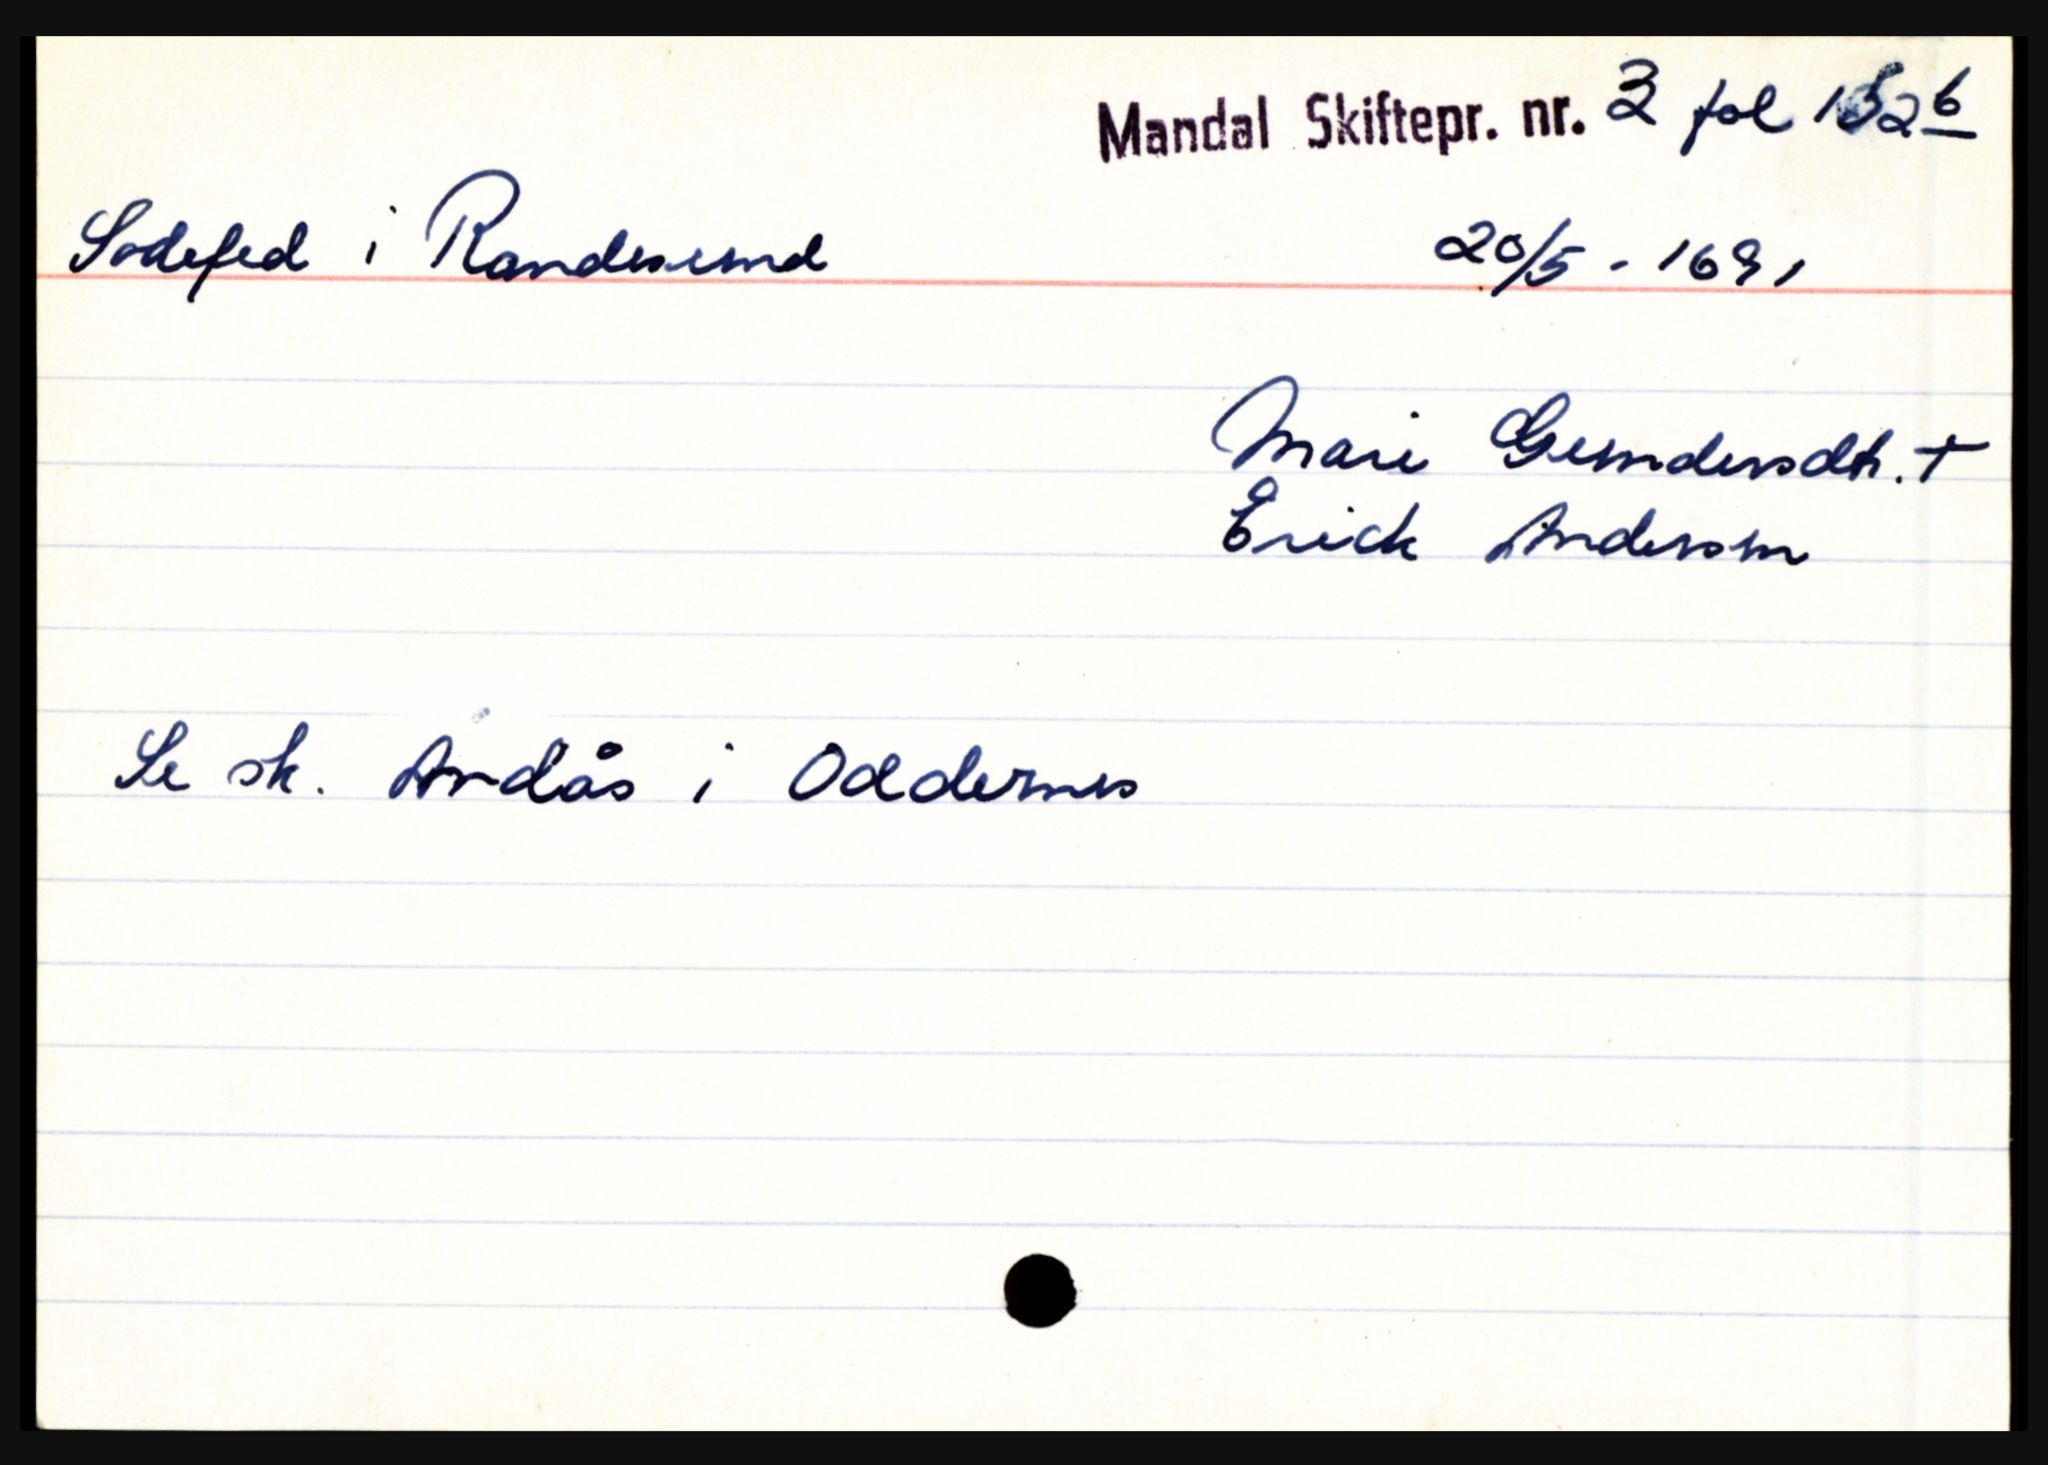 Mandal Skiftepr. nr. 3 fol 152b
Sodefed i Randesund 20/5 - 1691
Mari Gundersdtr. +
Erick Andersen
Se sk. Andås i Oddernes